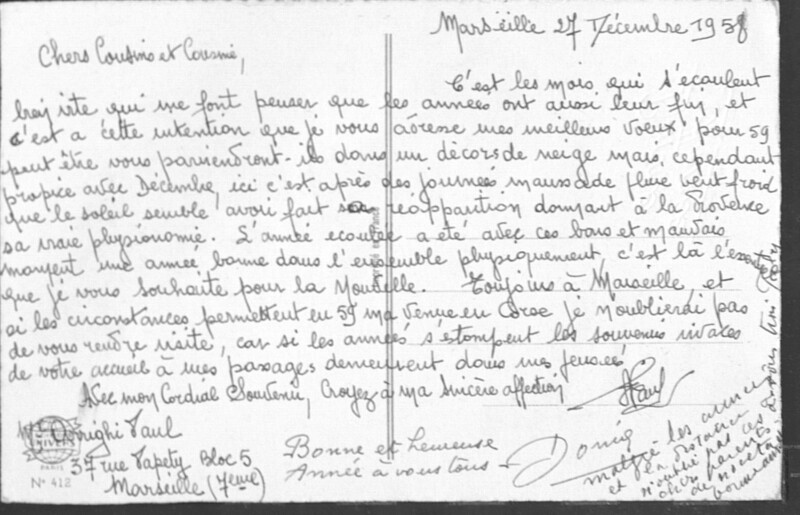 Marseille 27 Décembre 1958
Chers Cousins et Cousine,
C'est les mois qui s'écoulent
bien vite qui me font penser que les années ont aussi leur fin, et
c'est a cette intention que je vous adresse mes meilleurs voeux pour 59
peut être vous parviendront-ils dans un décors de neige mais, cependant
propice avec Décembre, ici c'est après des journées maussade pluie vent froid
que le soleil semble avoir fait sa réapparition donnant à la Provence
sa vraie physionomie. L'année ecoulée a été avec ces bons et mauvais
moment une année bonne dans l'ensemble physiquement c'est là
que je vous souhaite pour la Nouvelle. Toujours à Marseille, et
si les circonstances permettent en 59 ma venue en Corse je n'oublierai pas
de vous rendre visite, car si les années s'estompent les souvenirs vivaces
de votre accueil à mes passages demeurent dans mes pensées
Avec mon Cordial Souvenir, Croyez à ma Sincère affection Paul
Paul
37 rue Papety Bloc 5
Marseille (7ème)
PARIS
N° 412
Bonne et heureuse
Année à vous tous -
malgré les années
et la distance
n'oublie pas ces
chers parents
bonne année